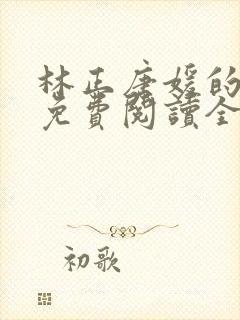 林正唐媛的
免費閱讀全
初歌